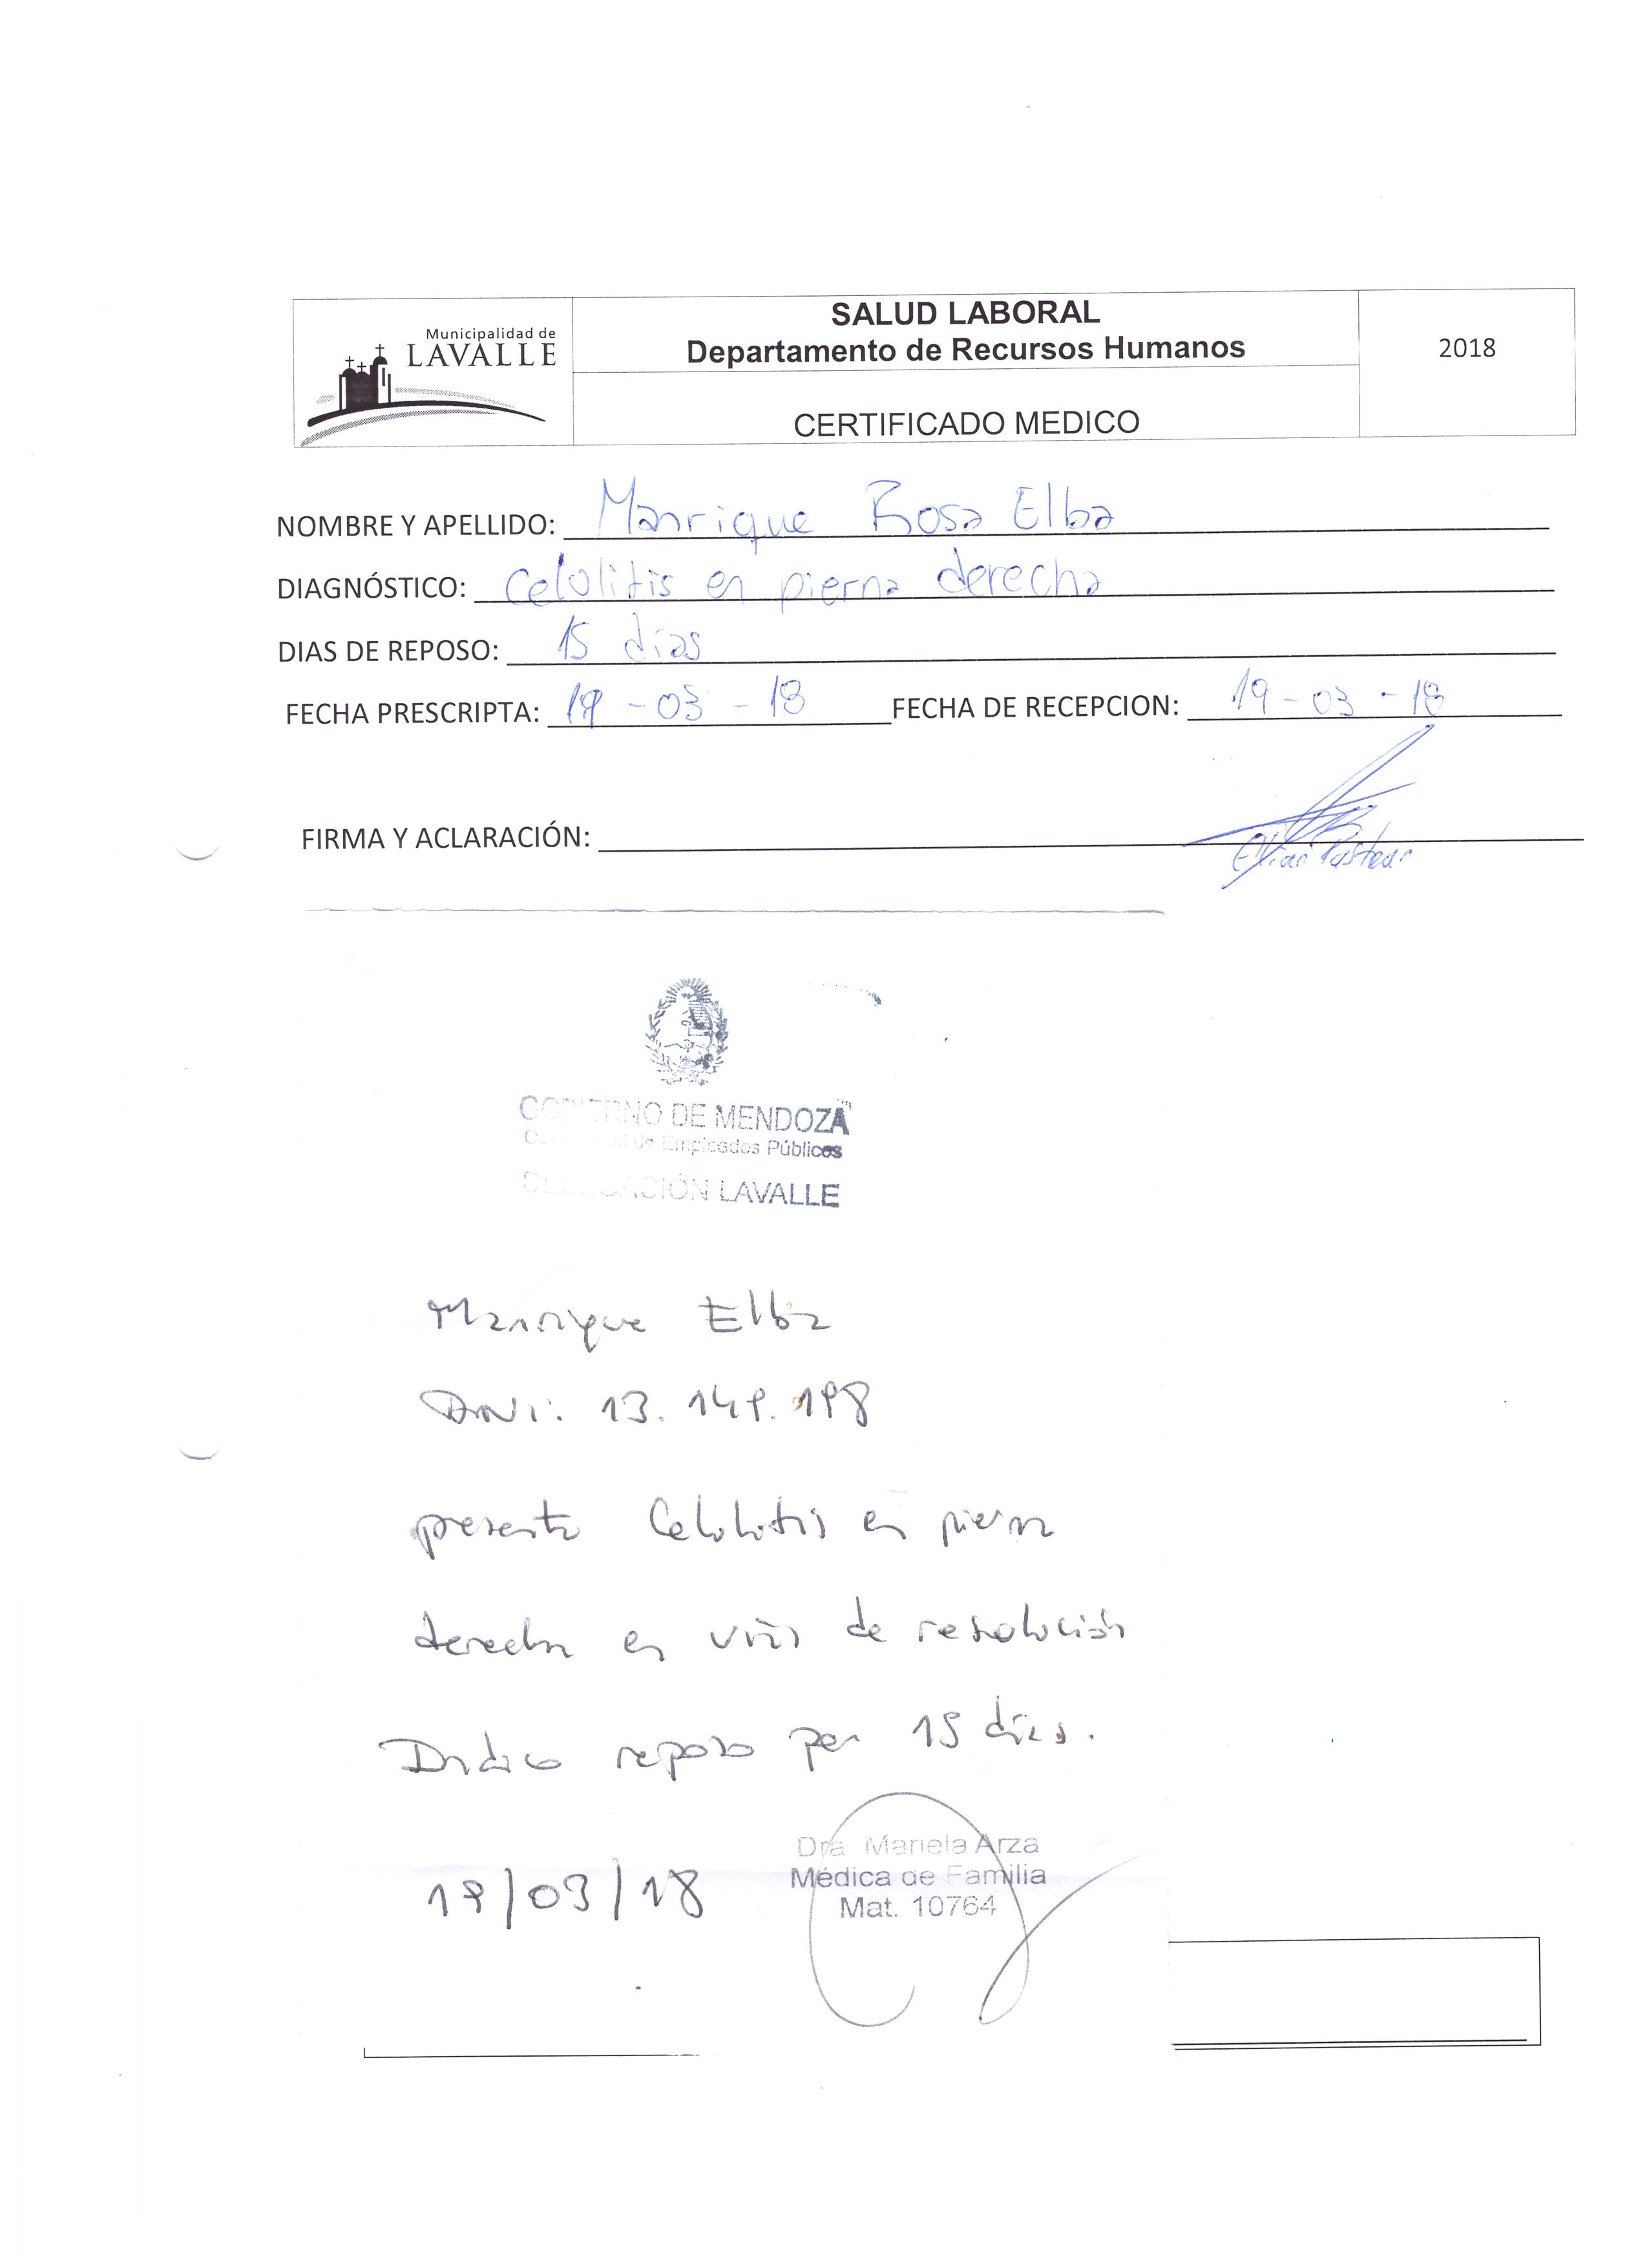 Municipalidad de
LAVALLE
SALUD LABORAL
Departamento de Recursos Humanos
2018
CERTIFICADO MEDICO
NOMBRE Y APELLIDO: Manrique Rosa Elba
DIAGNÓSTICO: Celulitis en pierna derecha
DIAS DE REPOSO: 15 días
FECHA PRESCRIPTA: 19-03-18 FECHA DE RECEPCION: 19-03-18
FIRMA Y ACLARACIÓN:
GOBIERNO DE MENDOZA
de Empleados Públicos
DELEGACIÓN LAVALLE
Manrique Elba
DNI: 13.149.198
presenta Celulitis en pierna
derecha en vías de resolución
Indico reposo por 15 días.
Dra Mariela Arza
Médica de Familia
Mat. 10764
19/03/18